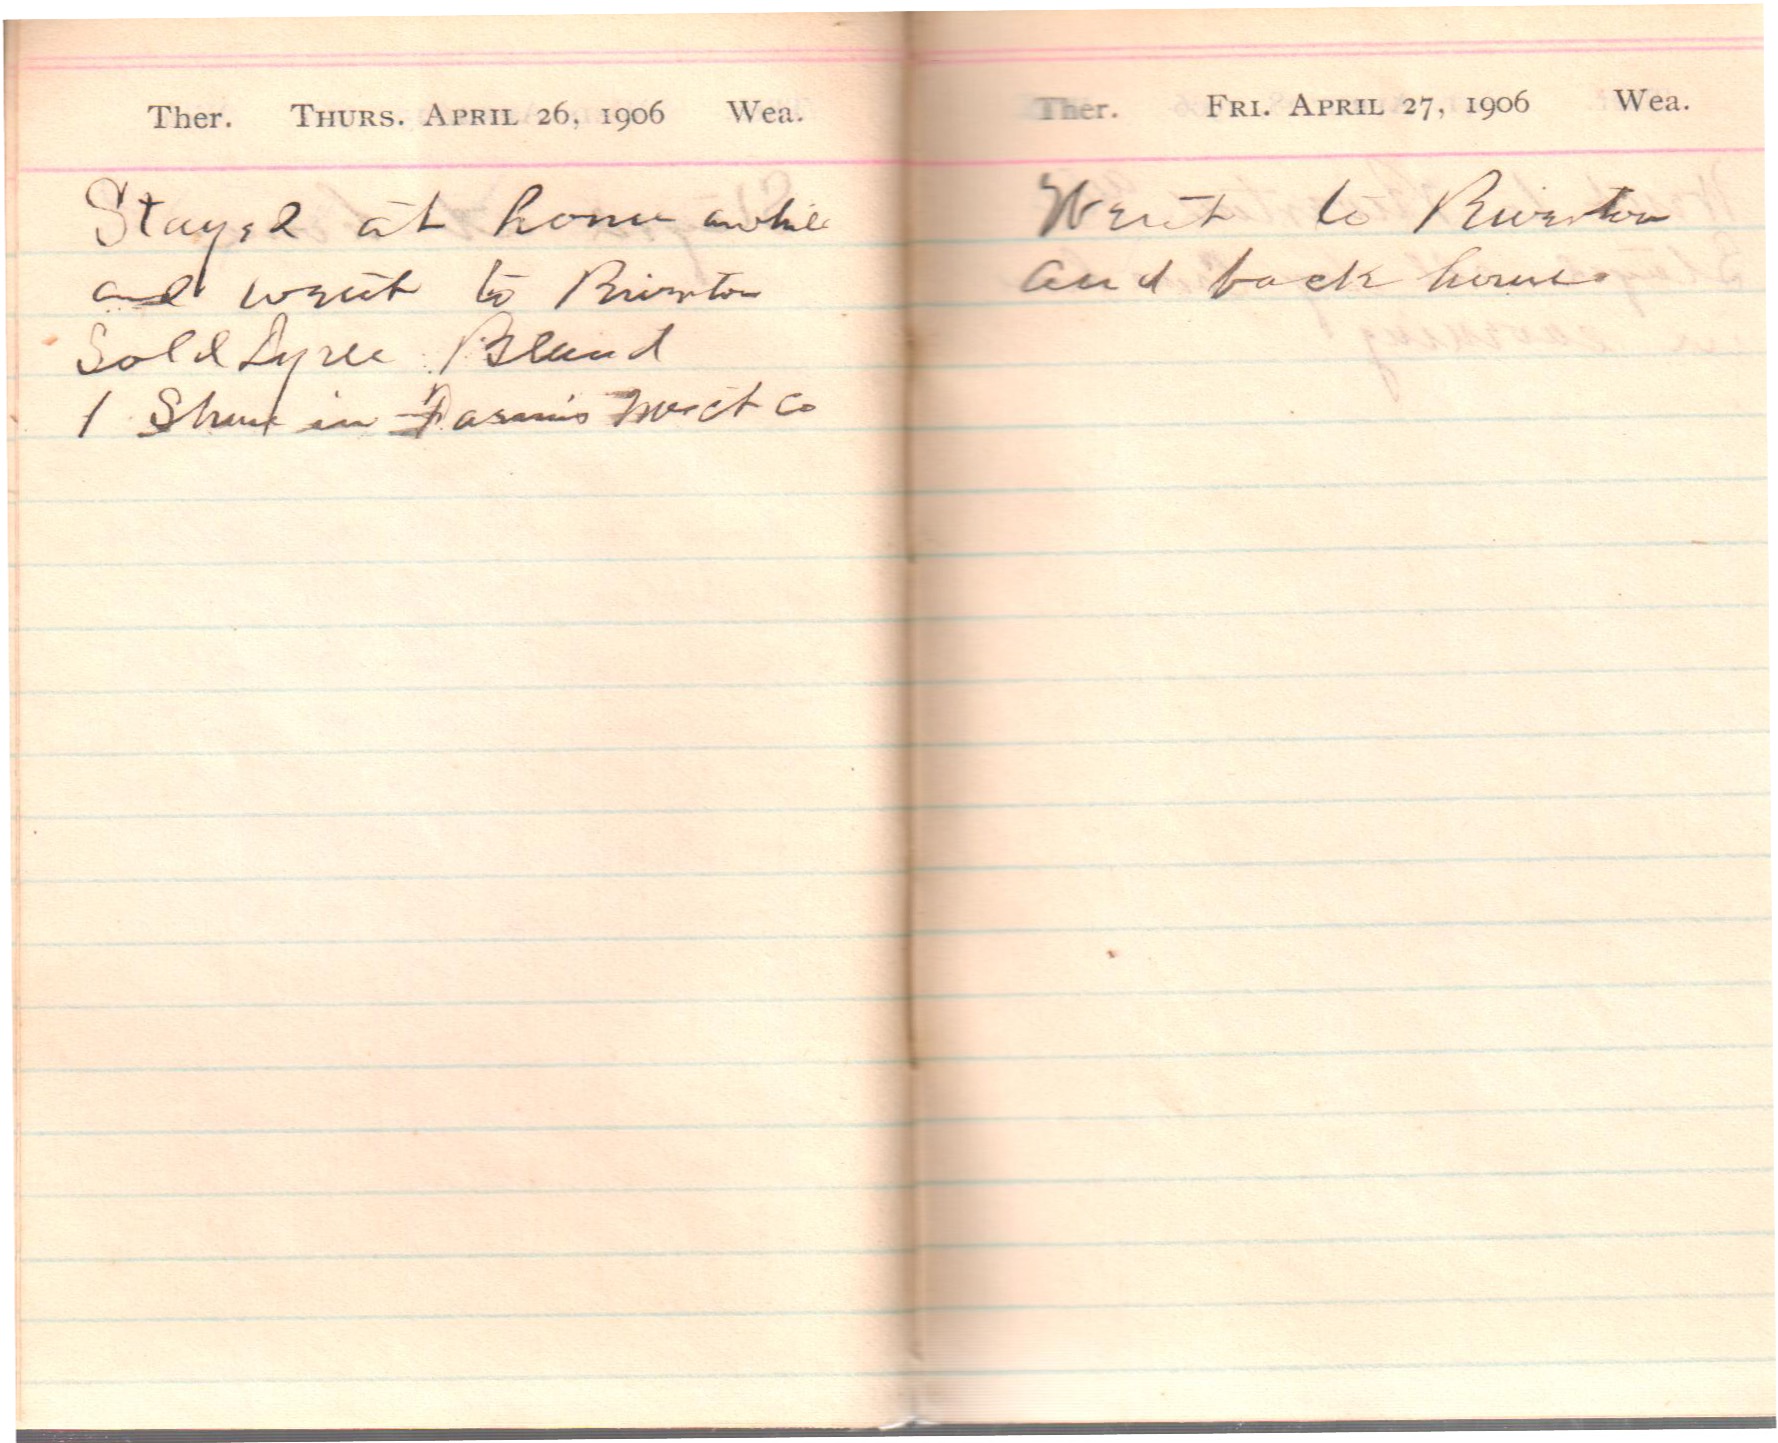 Ther. THURS. APRIL 26, 1906 Wea.
Stayed at home awhile
and went to Riverton
Sold Dyree Bland
1 Share in Farmis Merct Co
Ther. FRI. APRIL 27, 1906 Wea.
Went to Riverton
and back home.